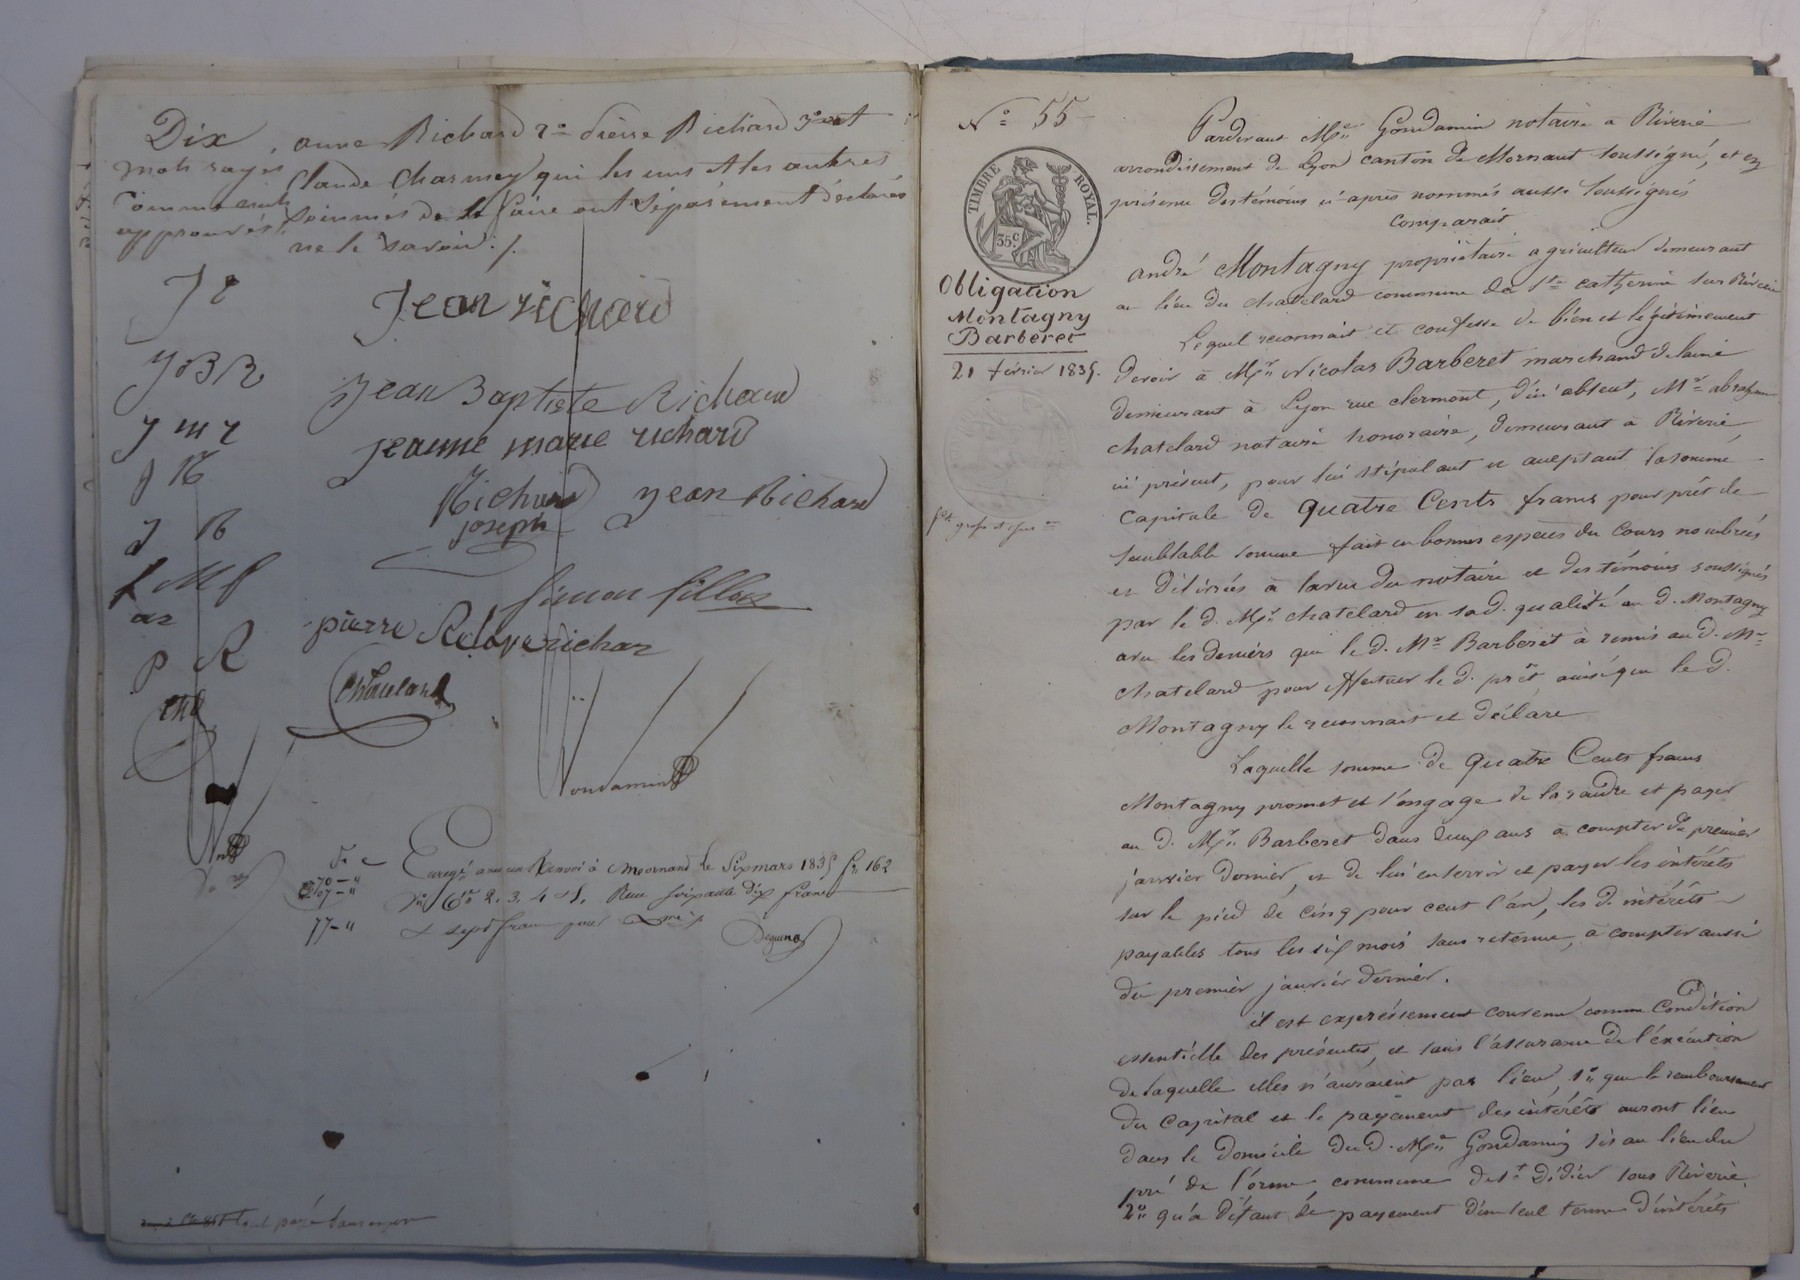 Dix
mots rayés
comme nuls
approuvés
, anne Richard 2o pierre Richard 3o et
Claude Charmey qui les uns et les autres
sommés de le faire ont séparément déclarés
ne le savoir ./.
J r
jean richard
J B R
jean Baptiste Richard
J m r
jeanne marie richard
J R
Richard
joseph
jean Richard
J R
Simon fillon
pierre
richar
P R
Chatelard
Gondamin
Enregé à Mornand le Six mars 1835 fo 162
2. 3. 4 et 5. Reçu soixante dix francs
70 – "
7 – "
77 – "
et sept francs pour Dmes
No 55
TIMBRE ROYAL.
35c
Obligation
Montagny
Barberet
21 février 1835.
Pardevant Me Gondamin notaire a Riverie
arrondissement de Lyon canton de Mornant soussigné, et en
présence des témoins ci après nommés aussi soussignés
comparait
andré Montagny propriétaire agriculteur demeurant
au lieu du chatelard commune de Ste catherine sur Riverie
Lequel reconnait et confesse de bien et légitimement
devoir à Mr Nicolas Barberet marchand de laine
demeurant à Lyon rue clermont, d'ici absent, Mr abraham
chatelard notaire honoraire, demeurant à Riverie,
ici présent, pour lui stipulant et acceptant la somme
capitale de quatre Cents francs pour prêt de
semblable somme fait en bonnes espèces du cours nombrées
et délivrées à la vue du notaire et des témoins soussignés
par le d. Me chatelard en sa d. qualité au d. Montagny
avec les deniers que le d. Mr Barberet à remis au d. Mr
chatelard pour effectuer le d. prêt ainsi que le d.
Montagny le reconnait et déclare
Laquelle somme de quatre Cents francs
Montagny promet et s'engage de la rendre et payer
au d. Mr Barberet dans deux ans à compter du premier
janvier dernier, et de lui en servir et payer les intérêts
sur le pied de cinq pour cent l'an, les d. intérêts
payables tous les six mois sans retenue, à compter aussi
du premier janvier dernier.
il est expressément convenu comme Condition
essentielle des présentes, et sans l'assurance de l'exécution
de laquelle elles n'auraient pas lieu, 1o que le remboursement
du capital et le payement des intérêts auront lieu
dans le domicile du d. Me Gondamin sis au lieu du
pré de l'orme, commune de St Didier sous Riverie.
2o qu'à défaut de payement d'un seul terme d'intérêts